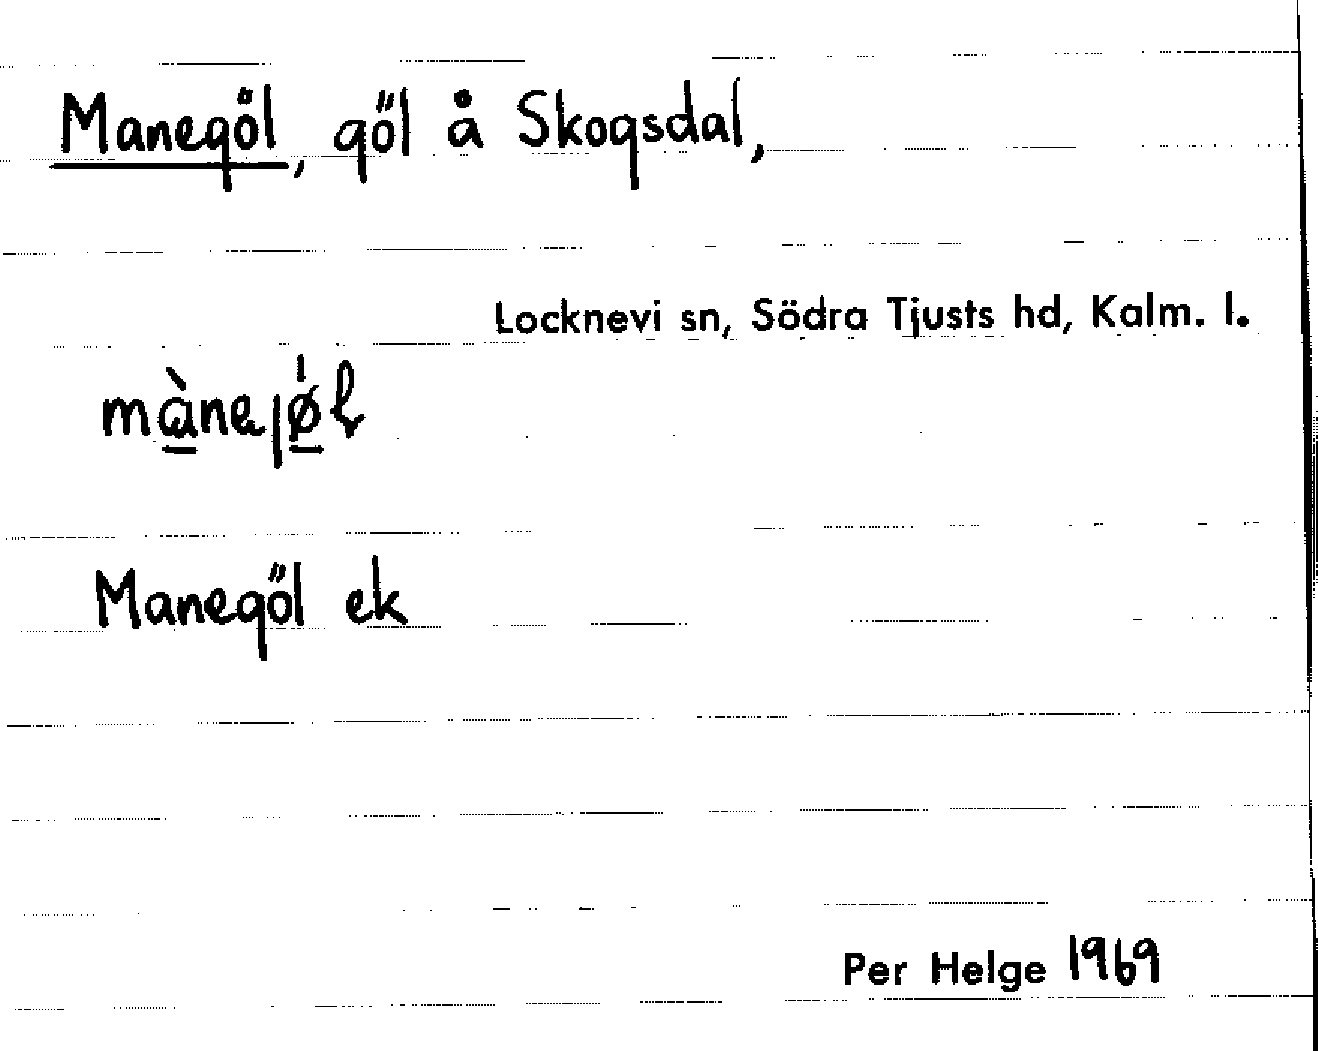 Manegöl, göl å Skogsdal,
Locknevi sn, Södra Tjusts hd, Kalm. l.
Manegöl ek
Per Helge 1969